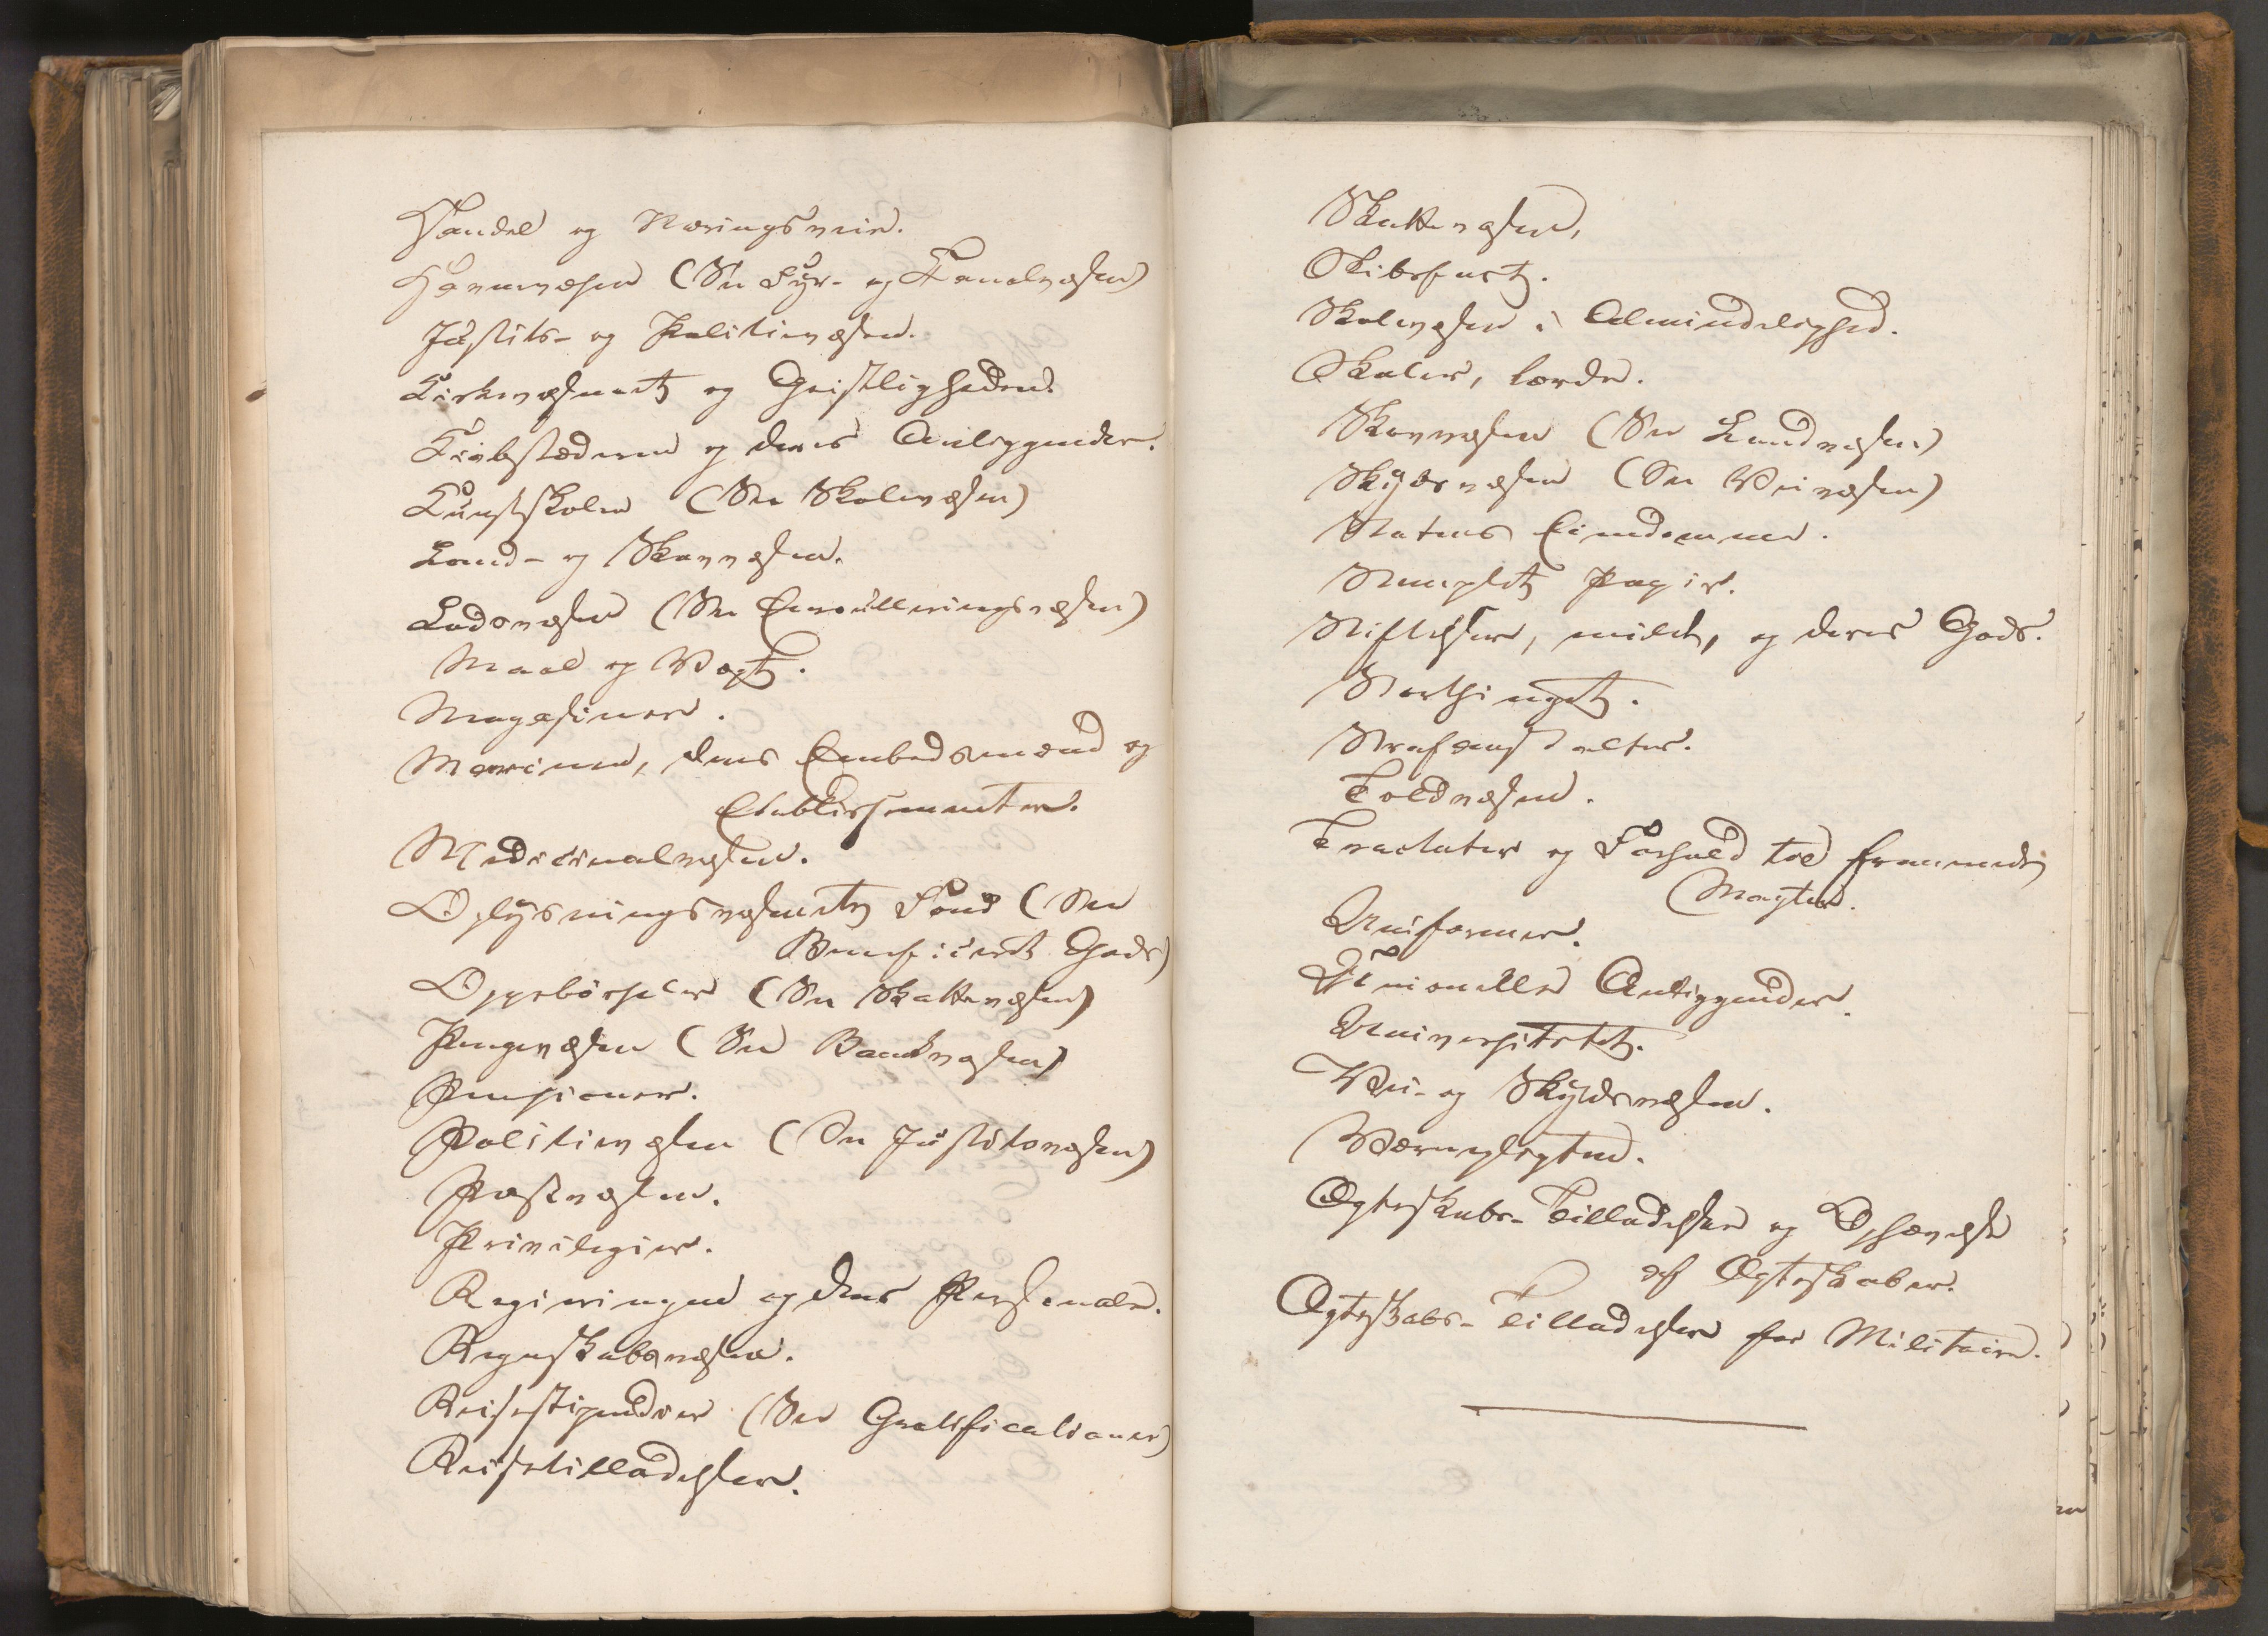 Handel og Næringsveie.
Havnevæsen (See Fyr- og Kanalvæsen)
Justits- og Politievæsen.
Kirkevæsenet og Geistligheden.
Kiøbstæderne og deres Anliggender.
Kunstskolen (See Skolevæsen)
Land- og Skovvæsen.
Lodsvæsen (See Enroulleringsvæsen)
Maal og Vægt.
Magasiner.
Marinen, dens Embedsmænd og
Etablissementer.
Medicinalvæsen.
Oplysningsvæsenets Fond (See
Beneficeret Gods)
Oppebørseler (See Skattevæsen)
Pengevæsen (See Bankvæsen)
Pensioner.
Politievæsen (See Justitsvæsen)
Postvæsen.
Privilegier.
Regieringen og dens Personale.
Regnskabsvæsen.
Reisestipendier (See Gratificationer)
Reisetilladelser.
Skattevæsen.
Skibsfart.
Skolevæsen i Almindelighed.
Skoler, lærde.
Skovvæsen (See Landvæsen)
Skydsvæsen (See Veivæsen)
Statens Eiendomme.
Stemplet Papir.
Stiftelser, milde, og deres Gods.
Storthinget.
Strafanstalter.
Toldvæsen.
Tractater og Forhold til fremmede
Magter.
Uniformer.
Unionelle Anliggender.
Universitetet.
Vei- og Skydsvæsen.
Værnepligten.
Ægteskabs-Tilladelser og Ophævelse
af Ægteskaber.
Ægteskabs-Tilladelser for Militaire.